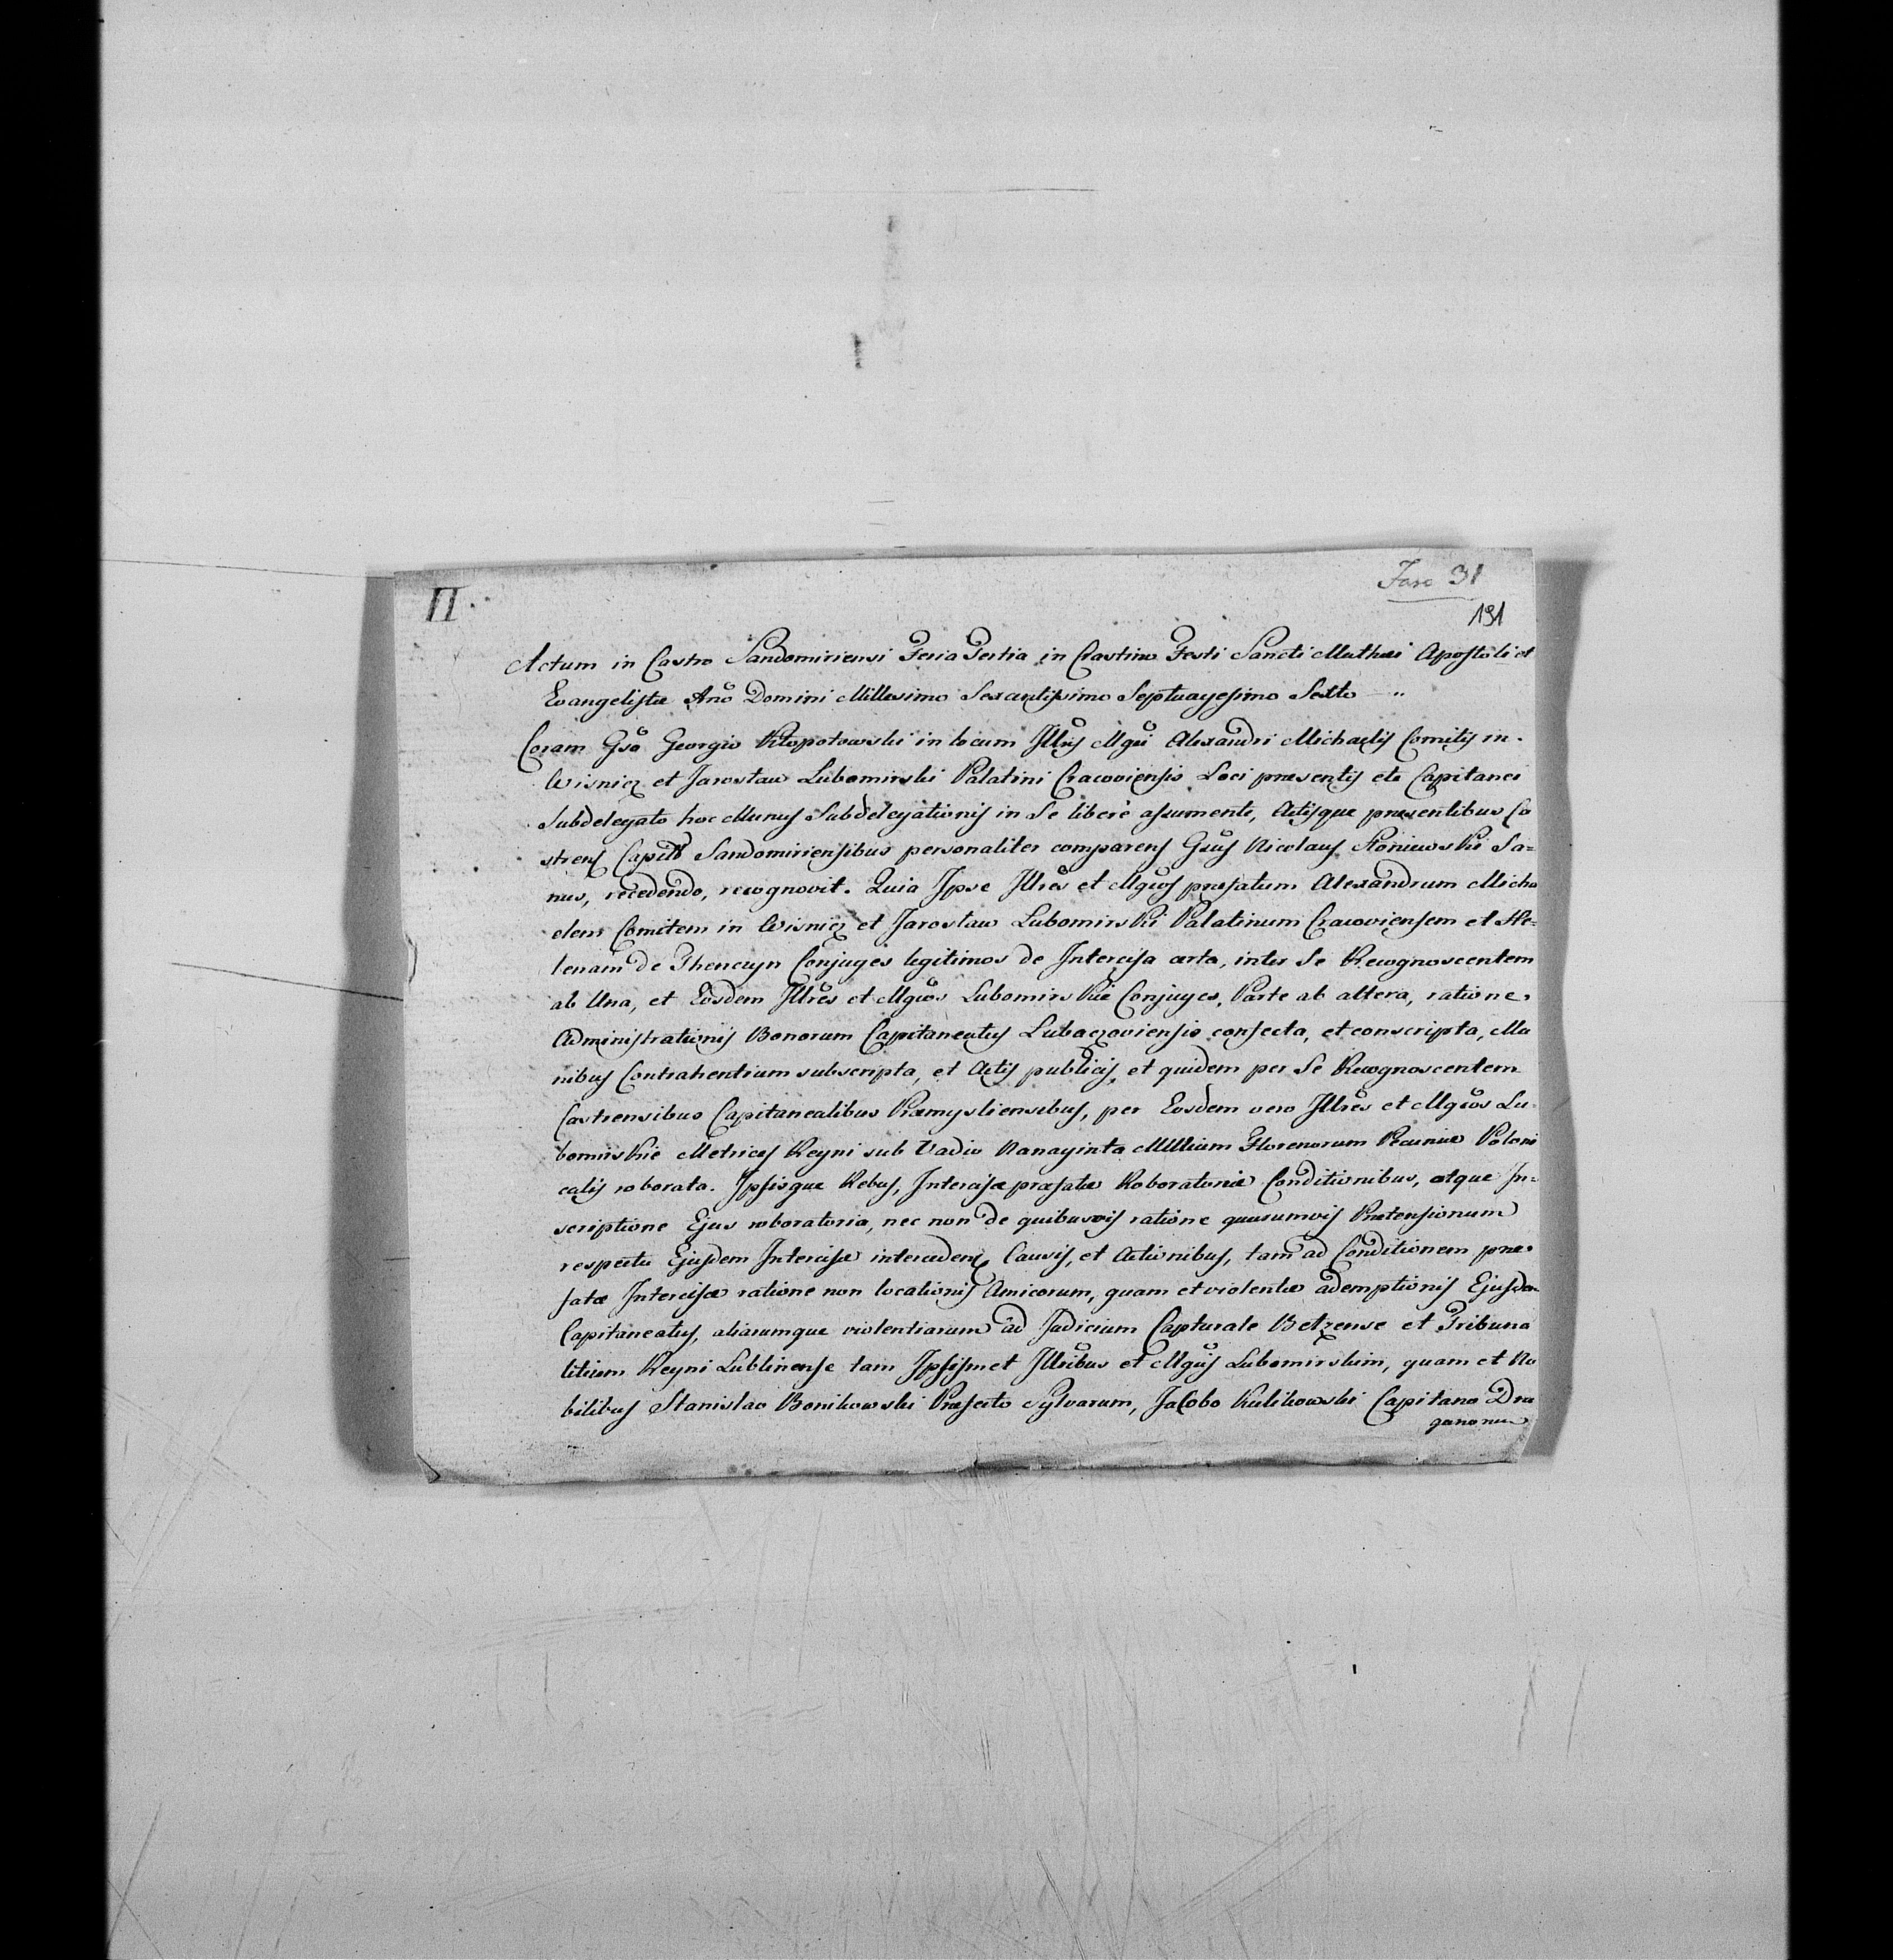 II.
Fasc 31
131
Actum in Castro Sandomiriensi Feria Tertia in Crastino Festi Sancti Mathæi Apostoli et
Evangelistæ Anõ Domini Millesimo Sexcentissimo Septuagesimo Sexto
Coram Gsõ Georgio Kłopotowski in locum Jllris Mgci Alexandri Michaelis Comitis in
Wisnicz et Jarosław Lubomirski Palatini Cracoviensis Loci præsentis etc Capitanei
Subdelegato hoc Munus Subdelegationis in Se liberè assumente, Actisque præsentibus Ca
strens Capit Sandomiriensibus personaliter comparens Gsus Nicolaus Słoniewski Sa=
nus, recedendo, recognovit. Quia Jpse Jllres et Mgcos præfatum Alexandrum Micha
elem Comitem in Wisnicz et Jarosław Lubomirski Palatinum Cracoviensem et He=
lenam de Thenczyn Conjuges legitimos de Intercisa certa, inter Se Recognoscentem
ab Una, et Eosdem Jllres et Mgcos Lubomirskie Conjuges, Parte ab altera, ratione
Administrationis Bonorum Capitaneatus Lubaczoviensis confecta, et conscripta, Ma
nibus Contrahentium subscripta, et Actis publicis, et quidem per Se Recognoscentem
Castrensibus Capitanealibus Præmysliensibus, per Eosdem vero Jllres et Mgcos Lu
bomirskie Metrices Regni sub Vadio Nonaginta Millium Florenorum Pecuniæ Poloni
calis roborata. Jpsisque Rebus, Intercisæ præfatæ Roboratoriæ Conditionibus, atque In=
scriptione Ejus roboratoria, nec non de quibusvis ratione quarumvis Prætensionum
respectu Ejusdem Intercisæ intercedens Causis, et Actionibus, tam ad Conditionem præ
fatæ Intercisæ ratione non locationis Amicorum, quam et violentæ ademptionis Ejusdem
Capitaneatus, aliarumque violentiarum ad Judicium Capturale Belzense et Tribuna
litium Regni Lublinense tam Jpsismet Jllribus et Mgcis Lubomirskim, quam et No
bilibus Stanislao Bonikowski Præfecto Sylvarum, Jacobo Kulikowski Capitano Dra
ganorum